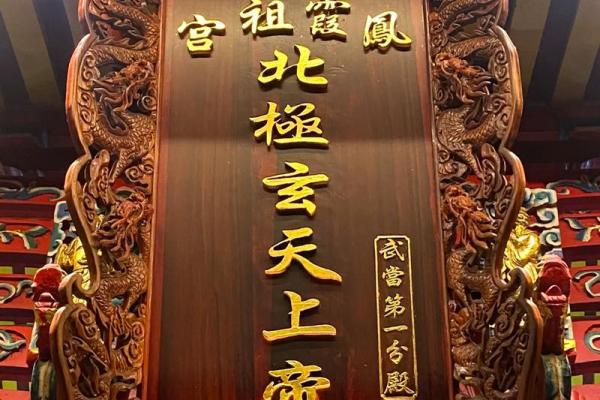 鳳霞祖宮
北極玄天上帝
武當第一分殿